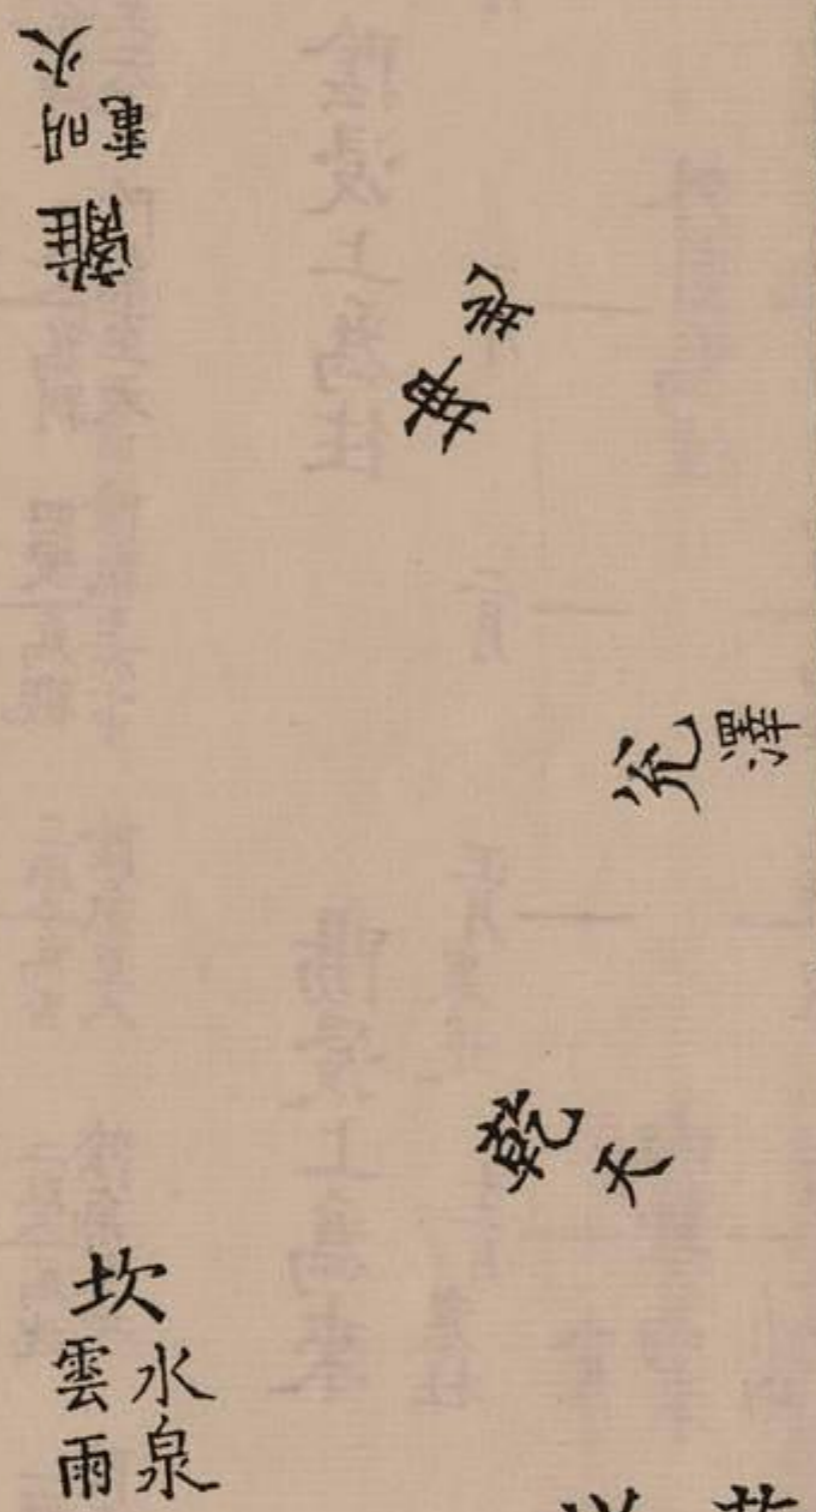 離
電明
火
坤
地
兌
澤
乾
天
坎
水泉
雲雨